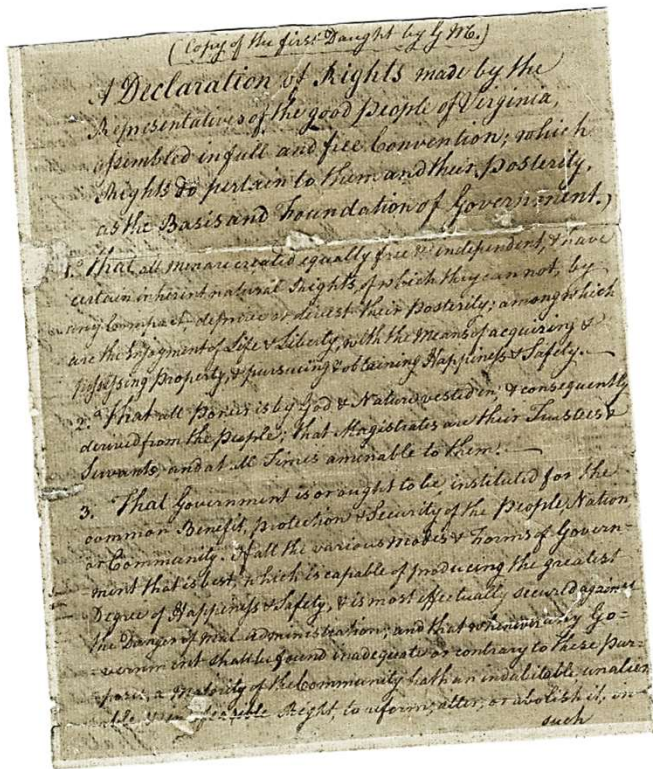 (Copy of the first Daught by G M.)
A Declaration of Rights made by the
Representatives of the good people of Virginia,
assembled in full and free Convention; which
Rights do pertain to them and their posterity,
as the Basis and Foundation of Government.)
1. That all men are created equally free & independent, & have
certain inherent natural Rights, of which they can not, by
any Compact, deprive or divest their Posterity; among which
are the Enjoyment of Life & Liberty, with the Means of acquiring &
possessing Property, & pursueing & obtaining Happiness & Safety.
2.d That all Power is by God & Nature vested in, & consequently
derived from the People; that Magistrates are their Trustees &
Servants, and at all Times amenable to them.
3. That Government is or ought to be, instituted for the
common Benefit, protection & Security of the People, Nation
or Community. Of all the various modes & Forms of Govern=
ment that is best, which is capable of producing the greatest
Degree of Happiness & Safety, & is most effectually secured against
the Danger of mal-administration; and that whenever any Go=
=vernment shall be found inadequate or contrary to these pur=
=poses, a Majority of the Community hath an indubitable, unalien
=able Right, to reform, alter, or abolish it, in
such